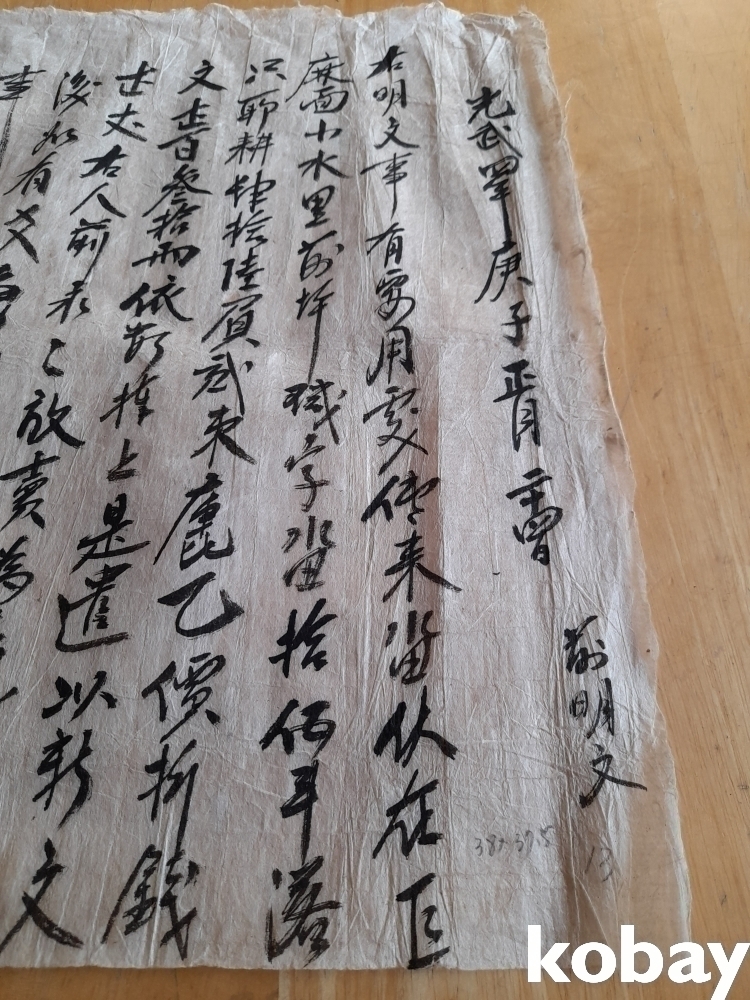 前明文
光武四年庚子正月二十四日
右明文事有要用處傳來畓伏在
麻面小水里前坪職字畓拾伍斗落
只耶耕肆拾陸負貳束庫乙價折錢
文壹百叁拾兩依數捧上是遣以新文
壹丈右人前永〻放賣爲
後如有
事
38×37.5
13
kobay